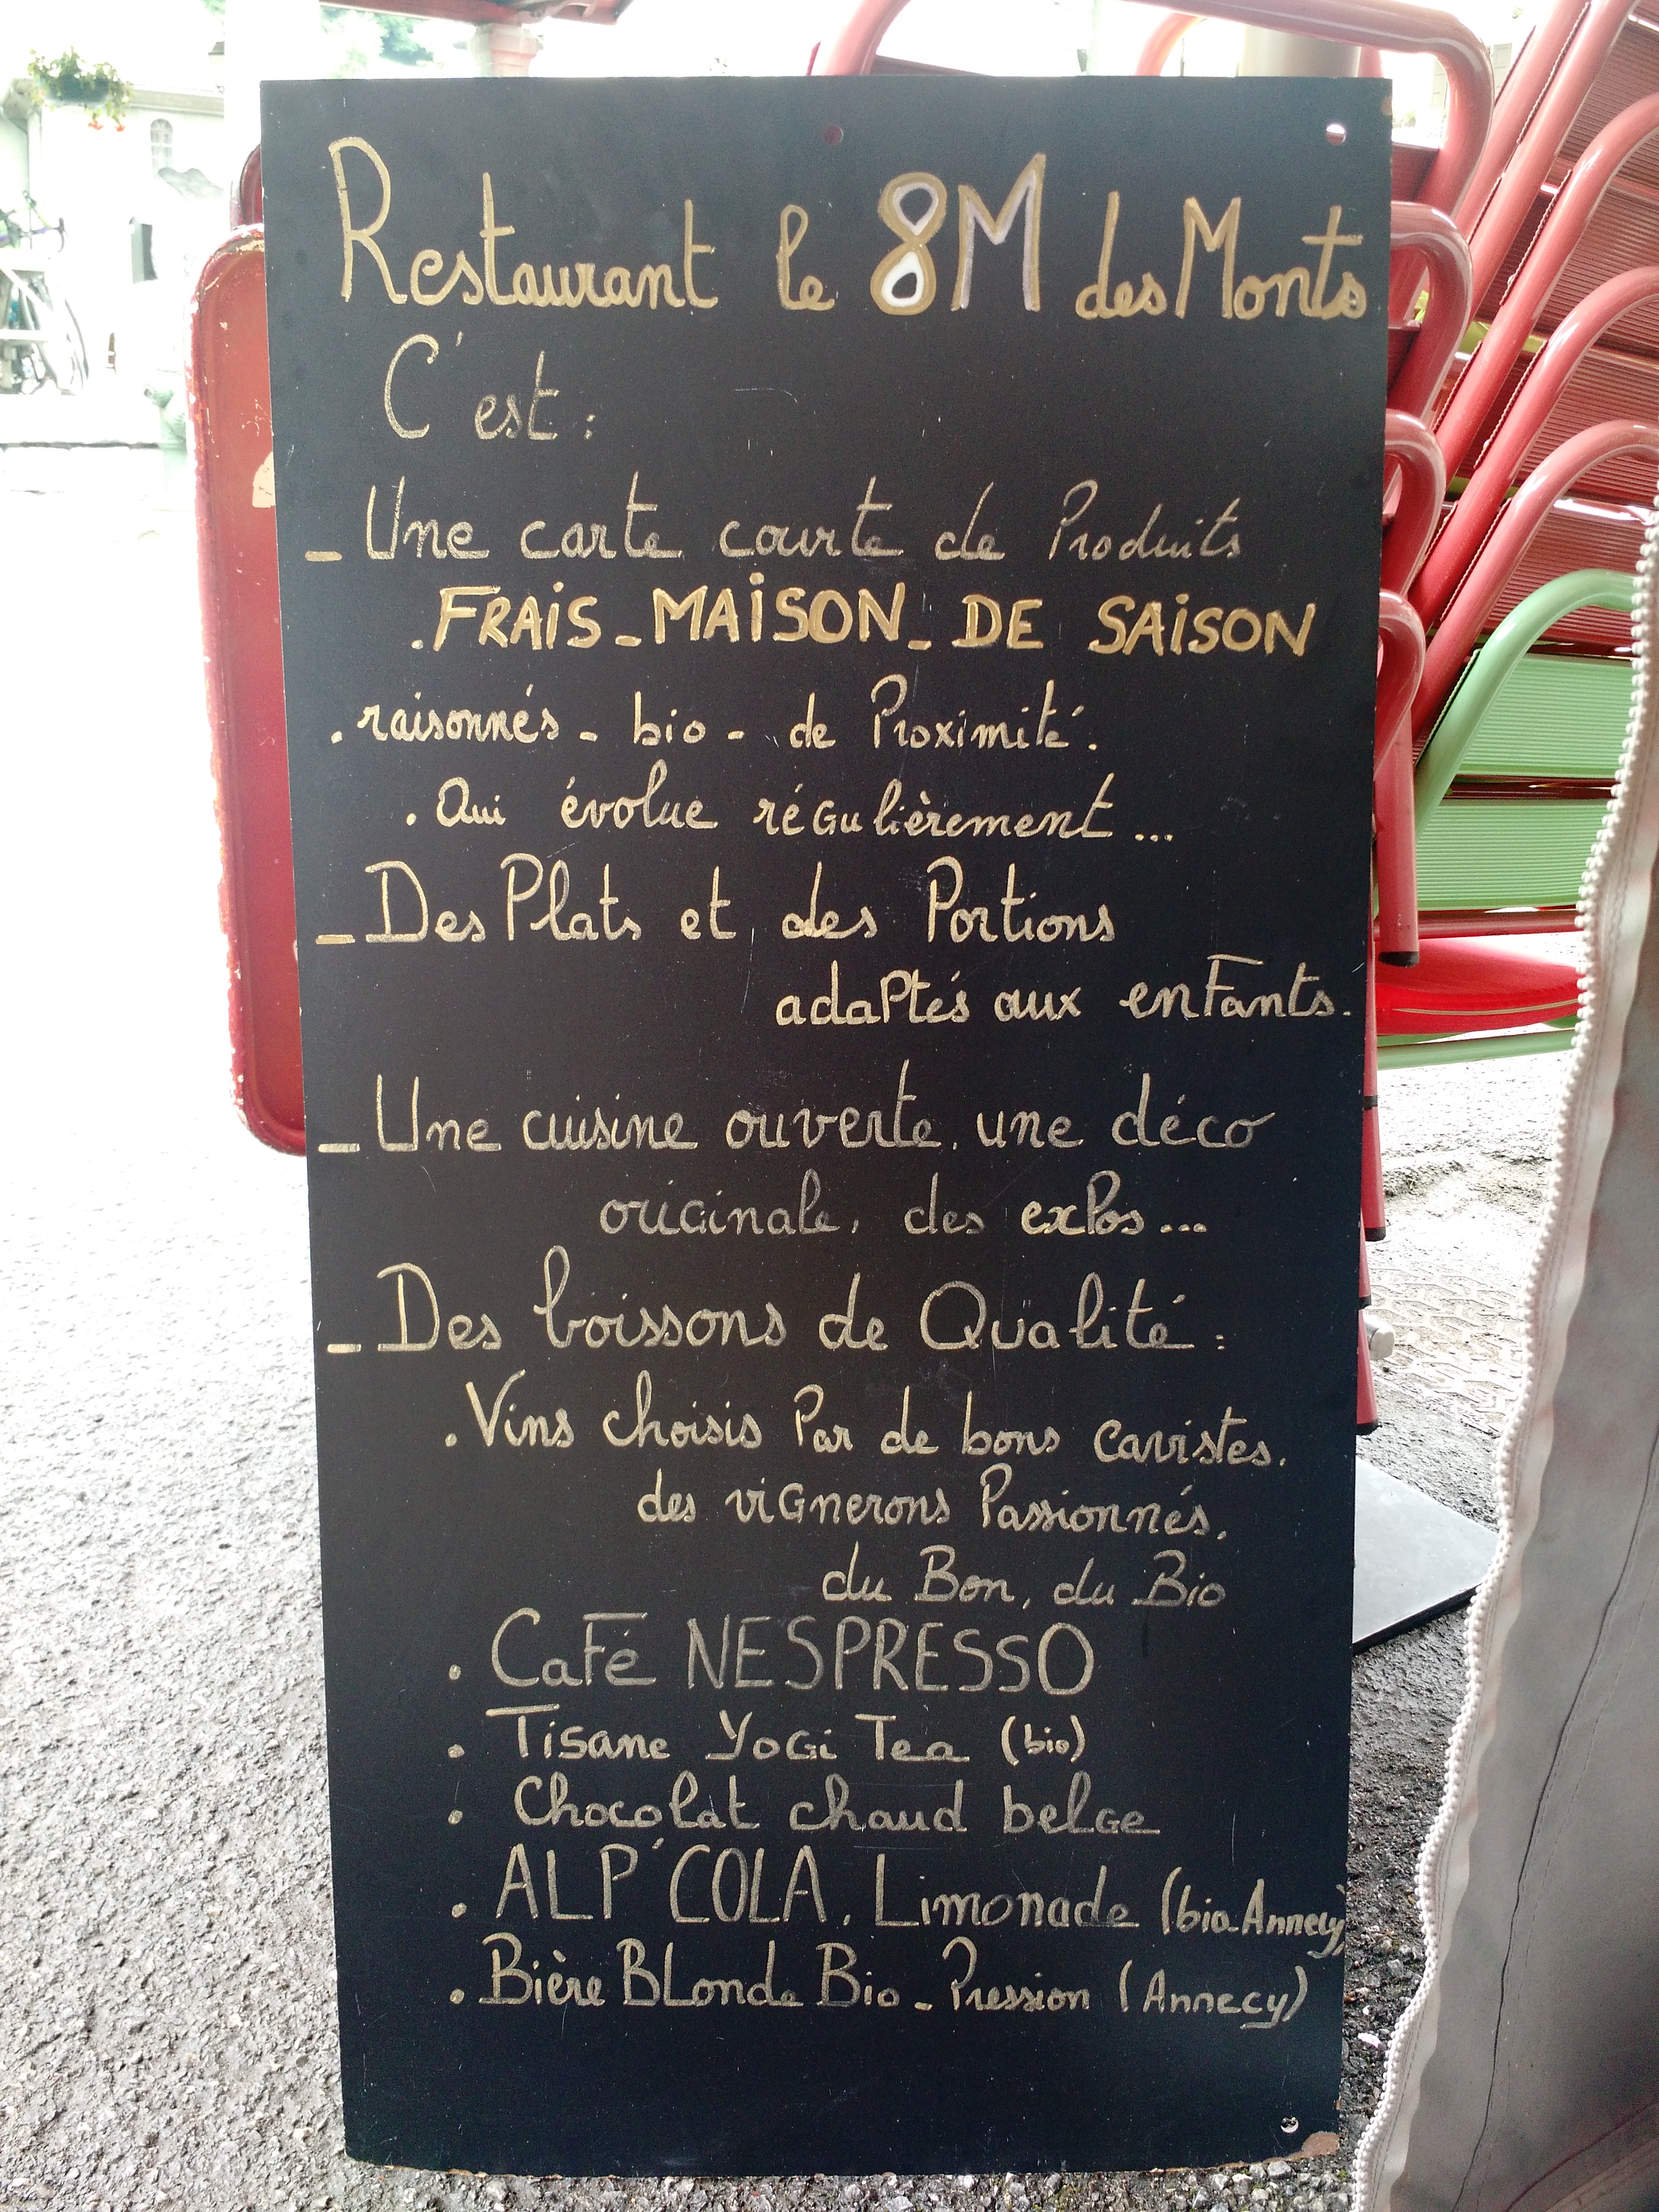 Restaurant le 8M des Monts
C'est :
_ Une carte courte de Produits
. FRAIS _ MAISON _ DE SAISON
. raisonnés - bio - de Proximité.
. Qui évolue régulièrement ...
_ Des Plats et des Portions
adaptés aux enfants.
_ Une cuisine ouverte, une déco
originale, des expos ...
_ Des boissons de Qualité :
. Vins choisis Par de bons cavistes,
des vignerons Passionnés,
du Bon, du Bio
. Café NESPRESSO
. Tisane Yogi Tea (bio)
. Chocolat chaud belge
. ALP'COLA, Limonade (bio Annecy)
. Bière Blonde Bio - Pression (Annecy)